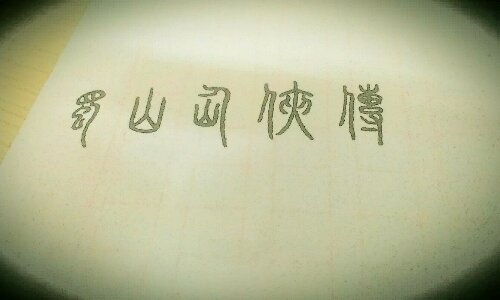 蜀山仙俠傳